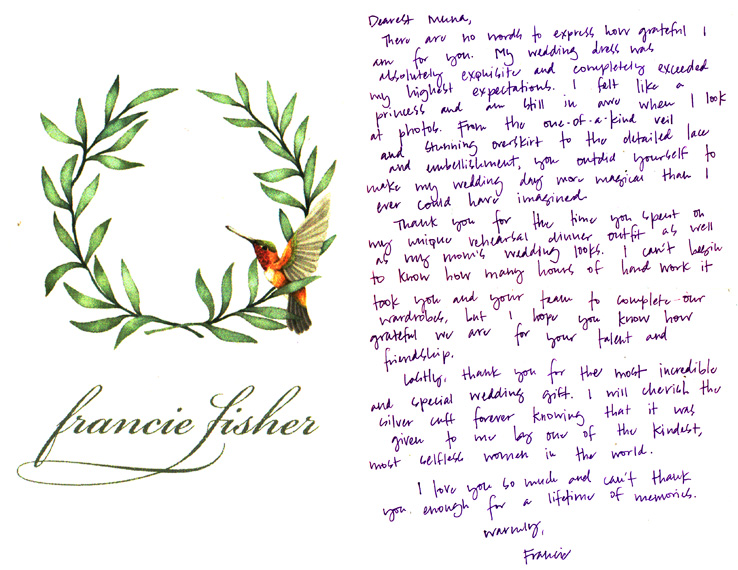 francie fisher
Dearest Muna,
There are no words to express how grateful I
am for you. My wedding dress was
absolutely exquisite and completely exceeded
my highest expectations. I felt like a
princess and am still in awe when I look
at photos. From the one-of-a-kind veil
and stunning overskirt to the detailed lace
and embellishment, you outdid yourself to
make my wedding day more magical than I
ever could have imagined.
Thank you for the time you spent on
my unique rehearsal dinner outfit as well
as my mom's wedding looks. I can't begin
to know how many hours of hand work it
took you and your team to complete our
wardrobes, but I hope you know how
grateful we are for your talent and
friendship.
Lastly, thank you for the most incredible
and special wedding gift. I will cherish the
silver cuff forever knowing that it was
given to me by one of the kindest,
most selfless women in the world.
I love you so much and can't thank
you enough for a lifetime of memories.
Warmly,
Francie